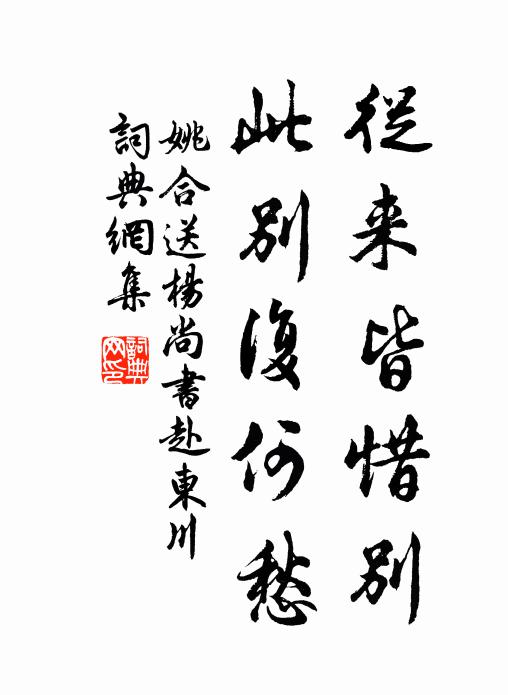 從来皆惜别
此别復何愁
姚合送楊尚書赴東川
詞典網集
詞典网印